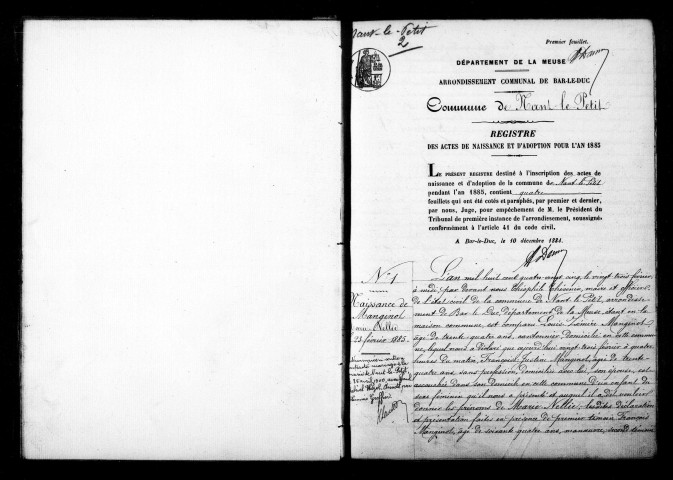 Nant-le-Petit
2
Premier feuillet.
DÉPARTEMENT DE LA MEUSE
ARRONDISSEMENT COMMUNAL DE BAR-LE-DUC
Commune de Nant-le-Petit
REGISTRE
DES ACTES DE NAISSANCE ET D'ADOPTION POUR L'AN 1885
LE PRÉSENT REGISTRE destiné à l'inscription des actes de
naissance et d'adoption de la commune de Nant-le-Petit
pendant l'an 1885, contient quatre
feuillets qui ont été cotés et paraphés, par premier et dernier,
par nous, Juge, pour empêchement de M. le Président du
Tribunal de première instance de l'arrondissement, soussigné
conformément à l'article 41 du code civil.
A Bar-le-Duc, le 10 décembre 1884.
N° 1
Naissance de
Manginot
Marie Nellie
23 février 1885.
L'an mil huit cent quatre-vingt cinq, le vingt trois février,
à midi, par devant nous Théophile maire et officier
de l'état civil de la commune de Nant-le-Petit, arrondisse
ment de Bar-le-Duc, département de la Meuse, étant en la
maison commune, est comparu Louis Manginot
âgé de trente-quatre ans, cantonnier, domicilié en cette commune
lequel nous a déclaré que aujourd'hui vingt-trois février à quatre
heures du matin, Françoise Justine Manginot, âgée de trente-
quatre ans, sans profession, domiciliée avec lui, son épouse, est
accouchée dans son domicile en cette commune d'un enfant de
sexe féminin qu'il nous a présenté et auquel il a dit vouloir
donner les prénoms de Marie Nellie, lesdites déclaration
et présentation faites en présence de premier témoin François
Manginot, âgé de soixante quatre ans, manœuvre, second témoin